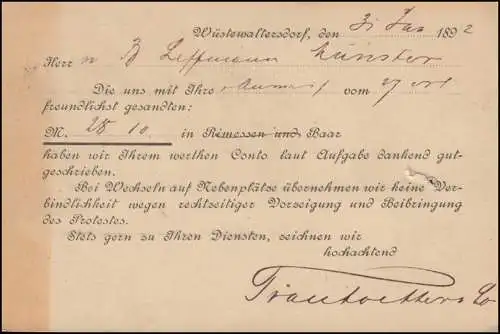 Wüstewaltersdorf, den 31 Jan 1892
Herr n B Leffmann Münster
Die uns mit Ihre vom 27 crt
freundlichst gesandten:
M. 28 10 in Rimessen und Baar
haben wir Ihrem werthen Conto laut Aufgabe dankend gut-
geschrieben.
Bei Wechseln auf Nebenplätze übernehmen wir keine Ver-
bindlichkeit wegen rechtzeitiger Vorzeigung und Beibringung
des Protestes.
Stets gern zu Ihren Diensten, zeichnen wir
hochachtend
& Co